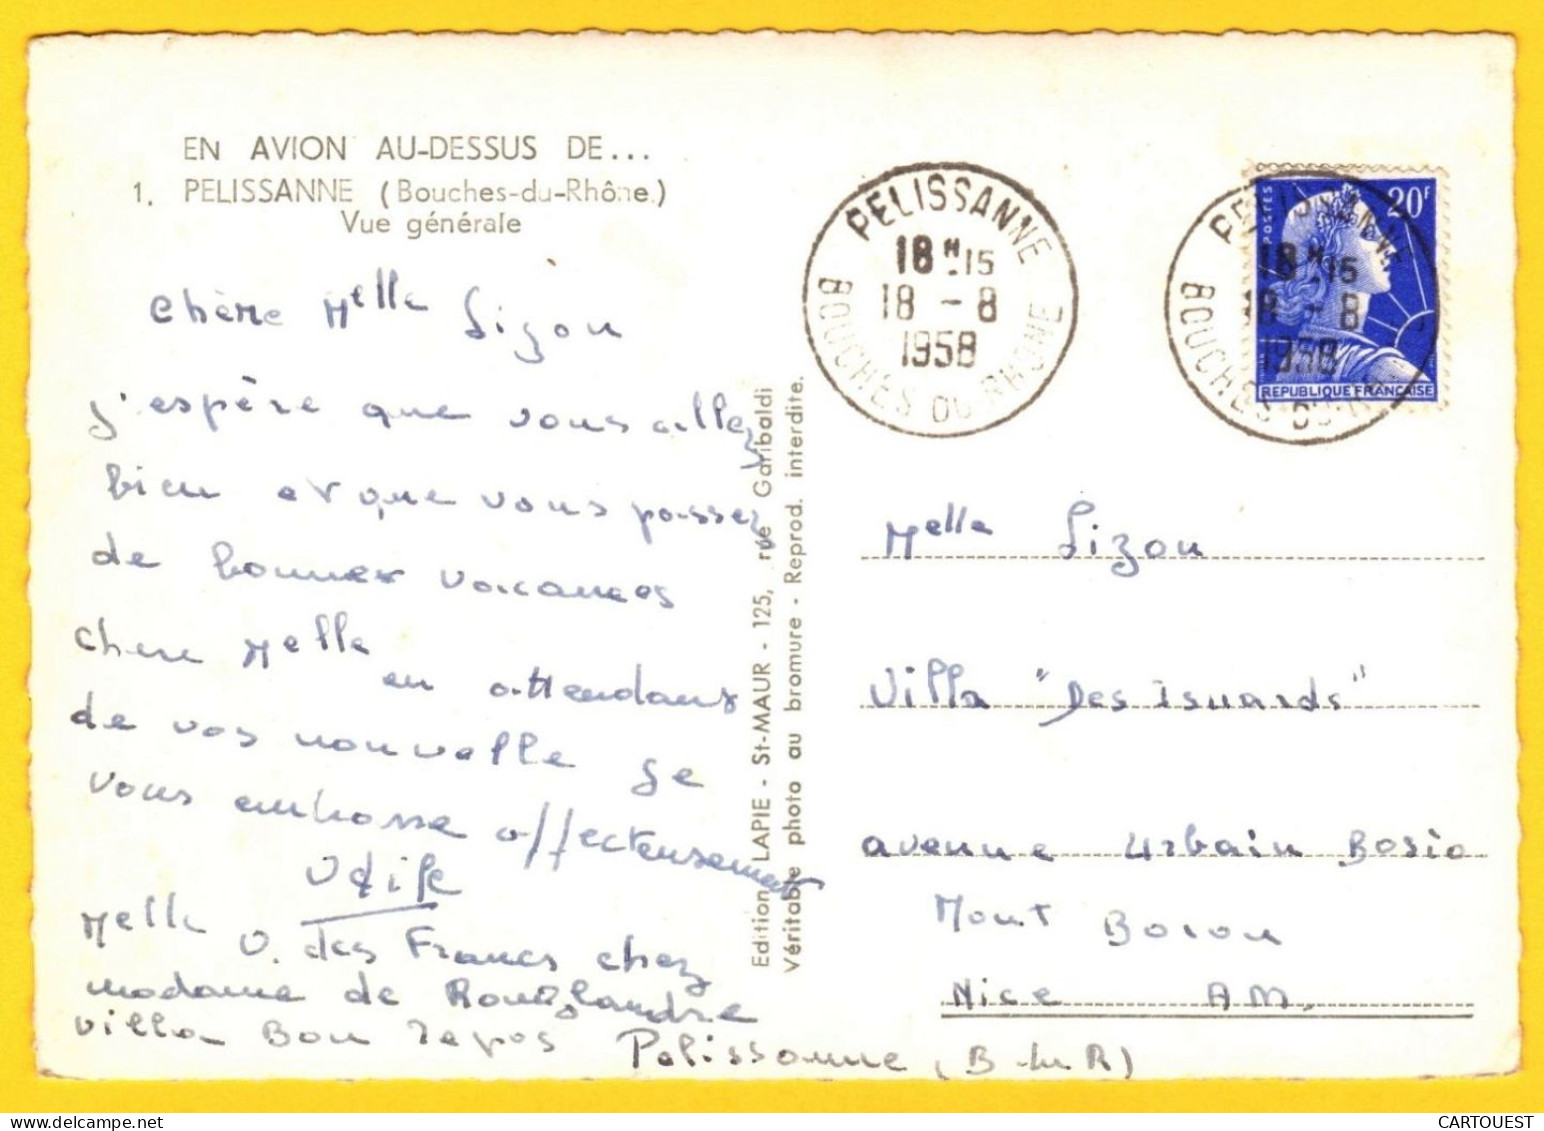 EN AVION AU-DESSUS DE...
1. PELISSANNE (Bouches-du-Rhône)
Vue générale
chère Melle Lizou
j'espère que vous allez
bien et que vous passez
de bonnes vacances
chere Melle en attendans
de vos nouvelle je
vous embrasse affecteusement
Odile
Melle O. des Francs chez
madame de
villa Bon repos Pelissanne (B-du-R)
Edition LAPIE - St-MAUR - 125, rue Garibaldi
Véritable photo au bromure - Reprod. interdite.
PELISSANNE
18H15
18 - 8
1958
BOUCHES DU RHONE
PELISSANNE
18H15
18 - 8
1958
BOUCHES DU RHONE
POSTES
20F
REPUBLIQUE FRANÇAISE
Melle Lizou
Villa "Des Isnards"
avenue Urbain Bosio
Mont Boron
Nice AM.
CARTOUEST